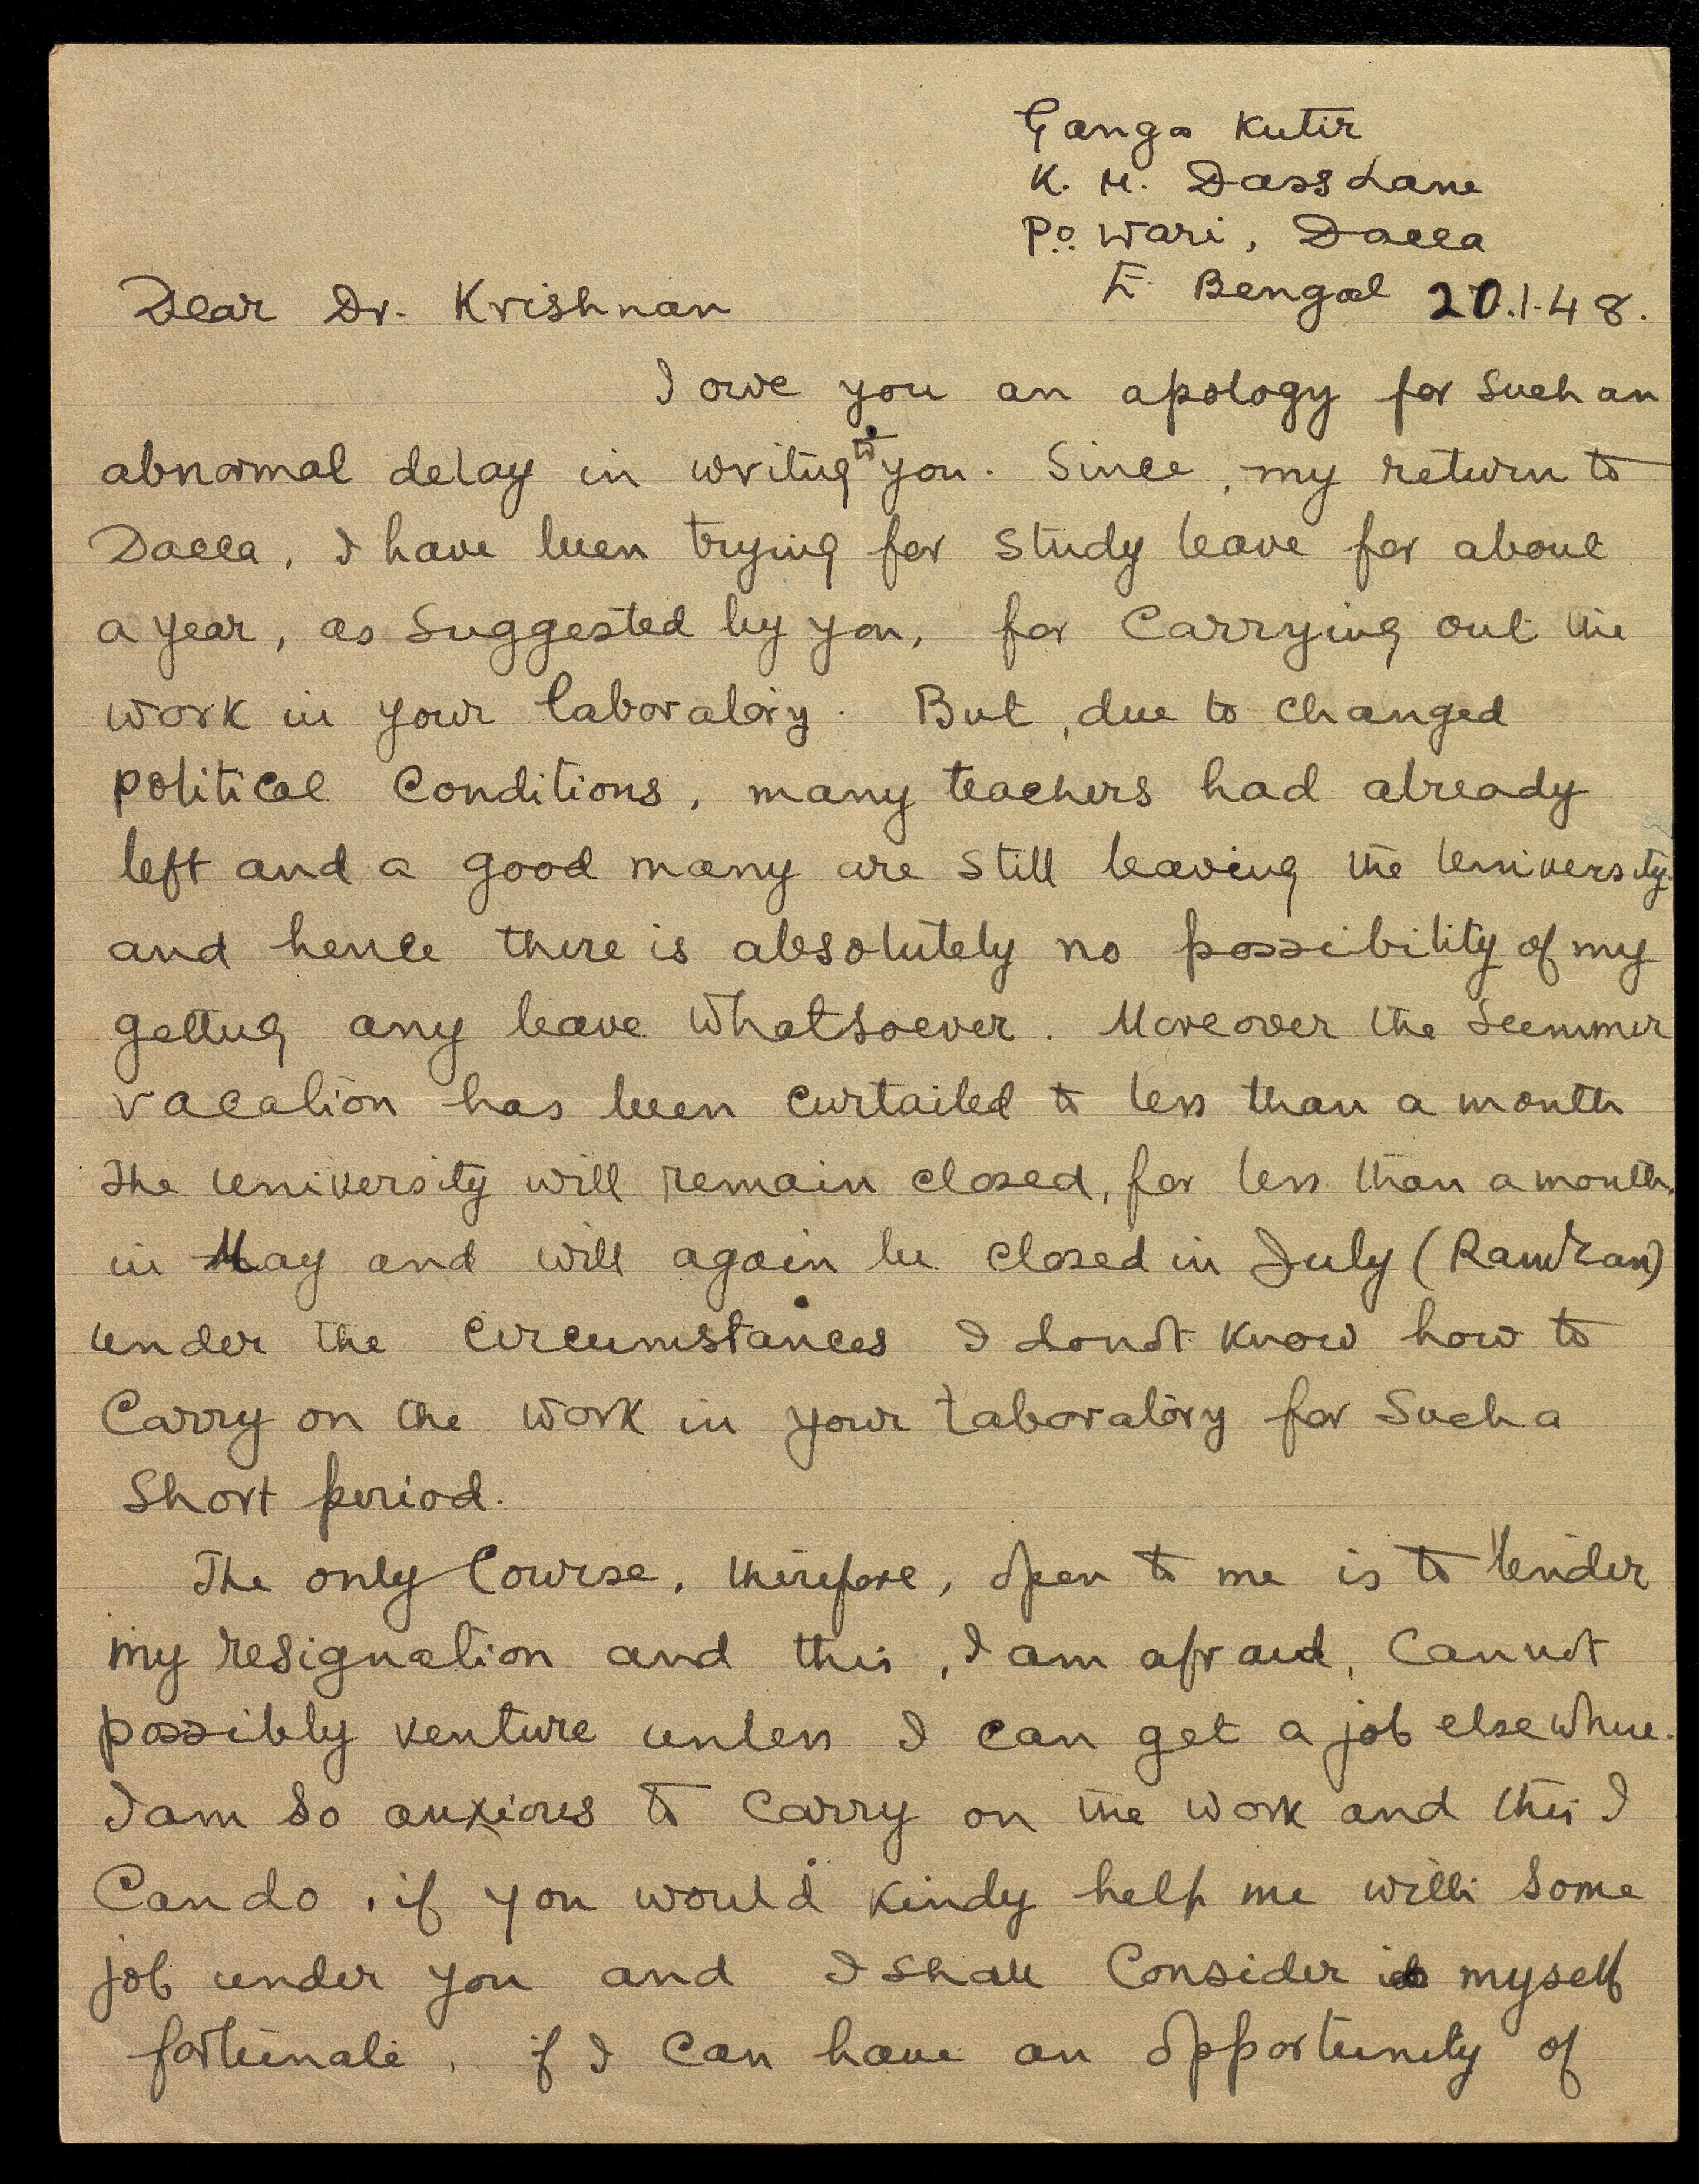 Ganga Kutir
K. M. Dass Lane
P.O. Wari, Dacca
E. Bengal 20.1.48.
Dear Dr. Krishnan
I owe you an apology for such an
abnormal delay in writing to you. Since, my return to
Dacca, I have been trying for study leave for about
a year, as suggested by you, for carrying out the
work in your laboratory. But, due to changed
political conditions, many teachers had already
left and a good many are still leaving the University
and hence there is absolutely no possibility of my
getting any leave whatsoever. Moreover the summer
vacation has been curtailed to less than a month
The University will remain closed, for less than a month
in May and will again be closed in July (Ramzan)
under the circumstances I donot know how to
carry on the work in your laboratory for such a
short period.
The only course, therefore, open to me is to tender
my resignation and this, I am afraid, cannot
possibly venture unless I can get a job elsewhere.
I am so anxious to carry on the work and this I
can do, if you would kindy help me with some
job under you and I shall consider myself
fortunate, if I can have an opportunity of